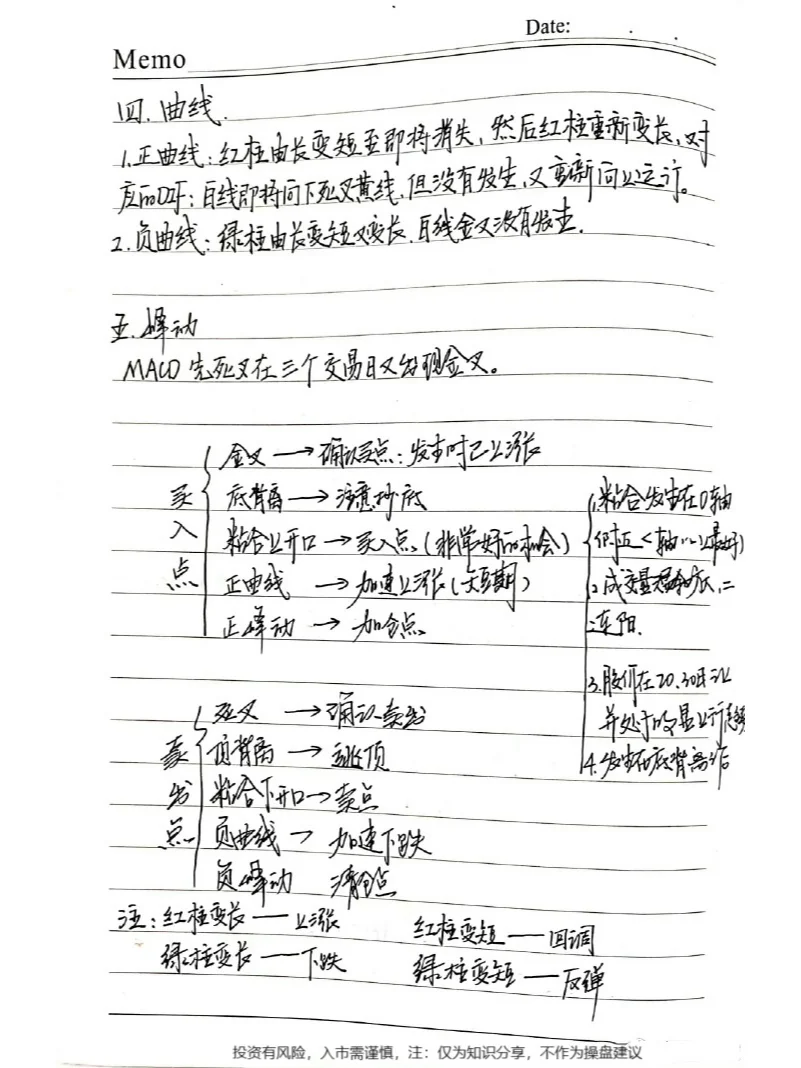 Date:
Memo
四.曲线.
1.正曲线:红柱由长变短至即将消失,然后红柱重新变长,对
应的DIF:白线即将向下死叉黄线,但没有发生,又重新向上运行。
2.负曲线:绿柱由长变短又变长.白线金叉没有发生.
五.峰动
MACD先死叉在三个交易日又出现金叉。
买入点
金叉→确认买点:发生时已上涨
底背离→注意抄底
粘合上开口→买入点(非常好的机会)
正曲线→加速上涨(短期)
正峰动→加仓点
1.粘合发生在0轴
附近<轴以上最好)
2.成交量
连阳.
3.股价在20.30日以上
并处于明显上行趋势
4.发生在底背离后
卖出点
死叉→确认卖出
顶背离→逃顶
粘合下开口→卖点
负曲线→加速下跌
负峰动 清仓点
注:红柱变长——上涨 红柱变短——回调
绿柱变长——下跌 绿柱变短——反弹
投资有风险,入市需谨慎,注:仅为知识分享,不作为操盘建议